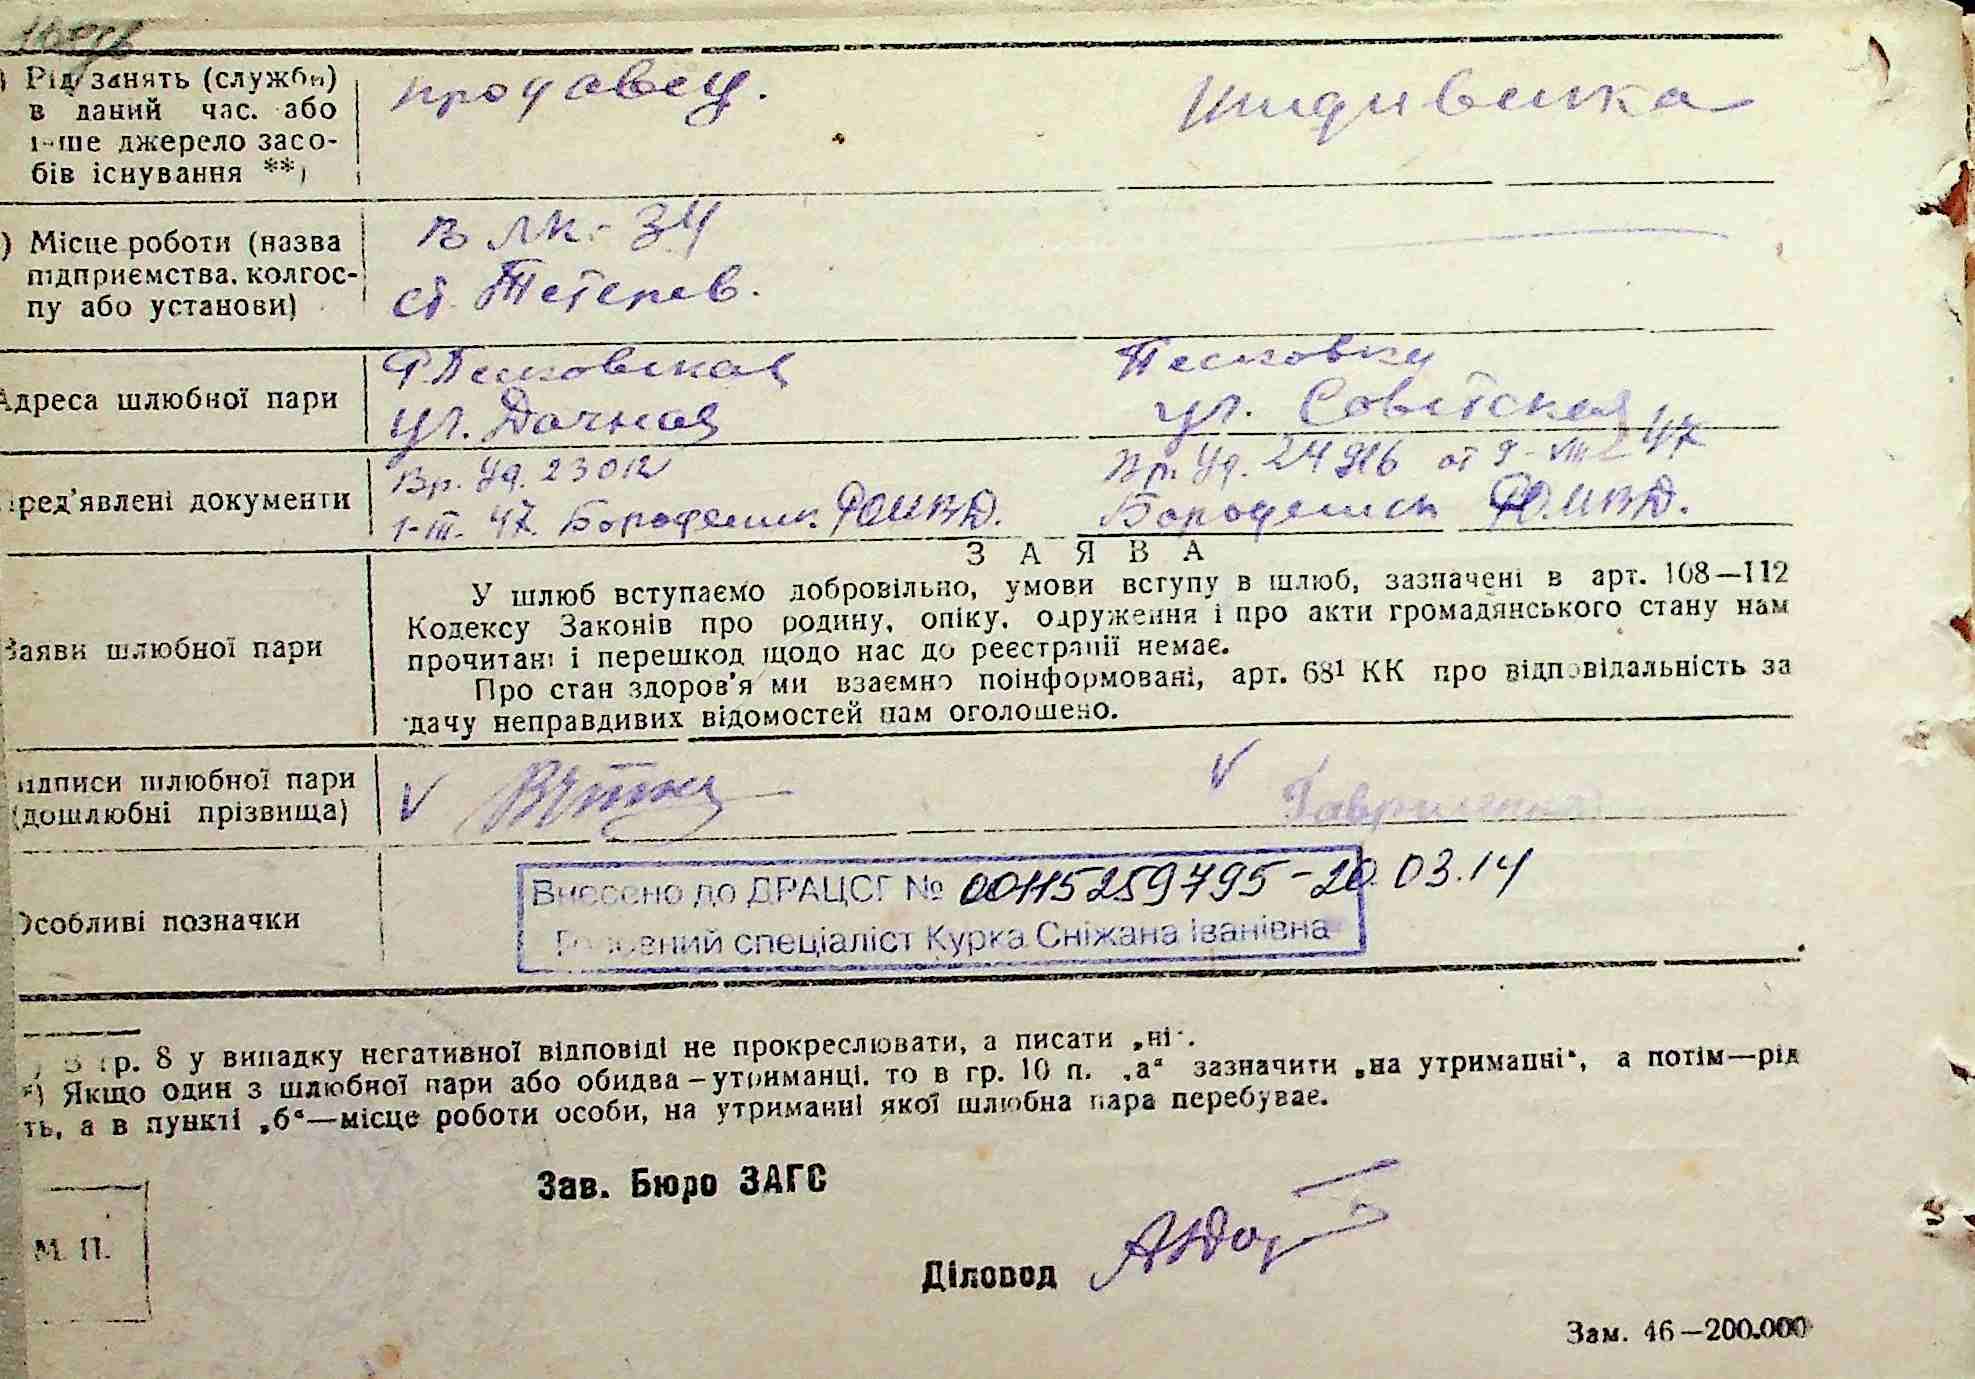 ) Рід занять (служби)
в даний час. або
інше джерело засо-
бів існування **)
продавец.
Иждивенка
) Місце роботи (назва
підприємства, колгос-
пу або установи)
В ЛК-34
ст. Тетерев.
Адреса шлюбної пари
Р. Песковская
ул. Дачная
Песковку
ул. Советская
пред'явлені документи
Вр. Уд. 23012
1-III. 47. Бородянск. РОМВД.
Вр. Уд. от 9-VIII 47
Бородянск РО.МВД.
З А Я В А
У шлюб вступаємо добровільно, умови вступу в шлюб, зазначені в арт. 108—112
Кодексу Законів про родину, опіку, одруження і про акти громадянського стану нам
прочитані і перешкод щодо нас до реєстрації немає.
Про стан здоров'я ми взаємно поінформовані, арт. 68¹ КК про відповідальність за
дачу неправдивих відомостей нам оголошено.
Заяви шлюбної пари
ідписи шлюбної пари
(дошлюбні прізвища)
V
V Гавриленко
Особливі позначки
Внесено до ДРАЦСГ № 00115259795-20.03.14
Головний спеціаліст Курка Сніжана Іванівна
) В гр. 8 у випадку негативної відповіді не прокреслювати, а писати „ні".
*) Якщо один з шлюбної пари або обидва—утриманці, то в гр. 10 п. „а" зазначити „на утриманні", а потім—рід
ть, а в пункті „б"—місце роботи особи, на утриманні якої шлюбна пара перебуває.
Зав. Бюро ЗАГС
М. П.
Діловод
Зам. 46—200.000